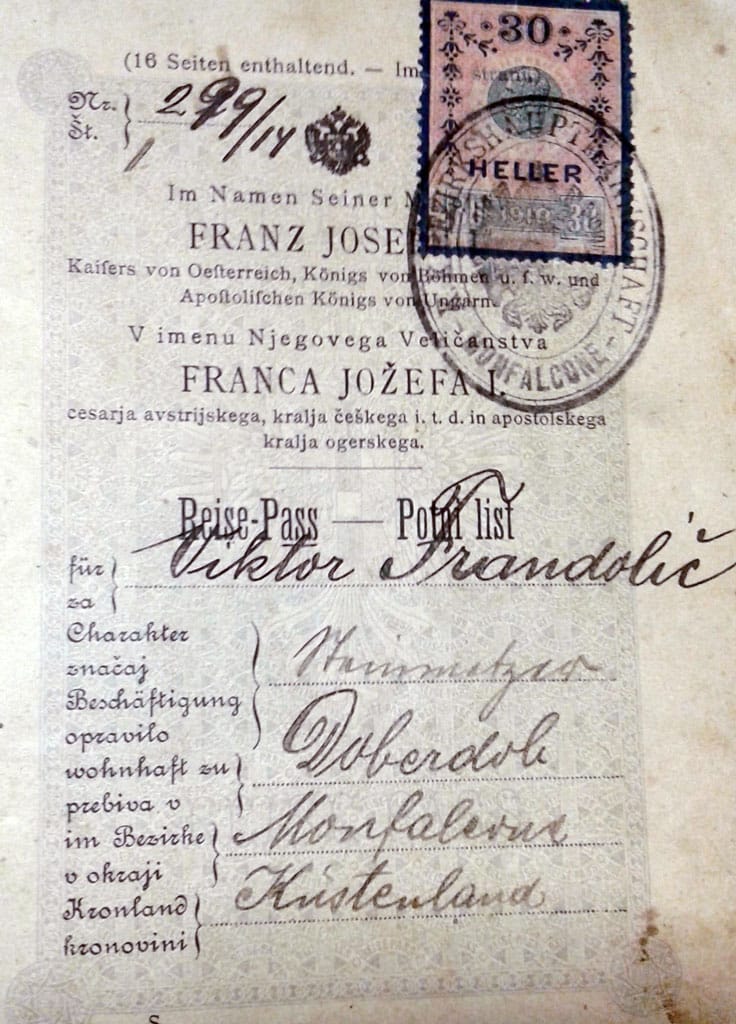 (16 Seiten enthaltend. — Im
30
HELLER
1909
Nr. 299/14
Št. 1
Im Namen Seiner
FRANZ JOSE
Kaisers von Oesterreich, Königs von Böhmen u. s. w. und
Apostolischen Königs von Ungarn.
MONFALCONE
V imenu Njegovega Veličanstva
FRANCA JOŽEFA I.
cesarja avstrijskega, kralja češkega i. t. d. in apostolskega
kralja ogerskega.
Reise-Pass — Potni list
für Viktor Frandolič
za
Charakter
značaj
Beschäftigung
opravilo
wohnhaft zu Doberdob
prebiva v
im Bezirke Monfalcone
v okraji
Kronland Küstenland
kronovini